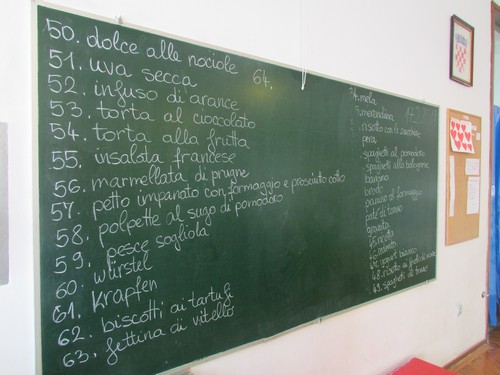 50. dolce alle nociole
51. uva secca
52. infuso di arance
53. torta al cioccolato
54. torta alla frutta
55. insalata francese
56. marmellata di prugne
57. petto impanato con formaggio e prosciutto cotto
58. polpette al sugo di pomodoro
59. pesce sogliola
60. würstel
61. Krapfen
62. biscotti ai tartufi
63. fettina di vitello
64.
34. mela
merendina
risotto con le zucchine
pera
spaghetti al pomodoro
spaghetti alla bolognese
panino
brodo
panino al formaggio
paté di tonno
48. risotto ai frutti di mare
49. spaghetti al tonno